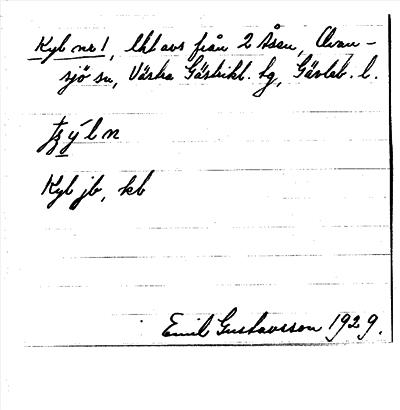 Kyb nr 1, lht avs från 2 Åsen, Ovan-
sjö sn, Västra Gästrikl. tg, Gävleb. l.
Kyb jb, kb
Emil Gustavsson 1929.